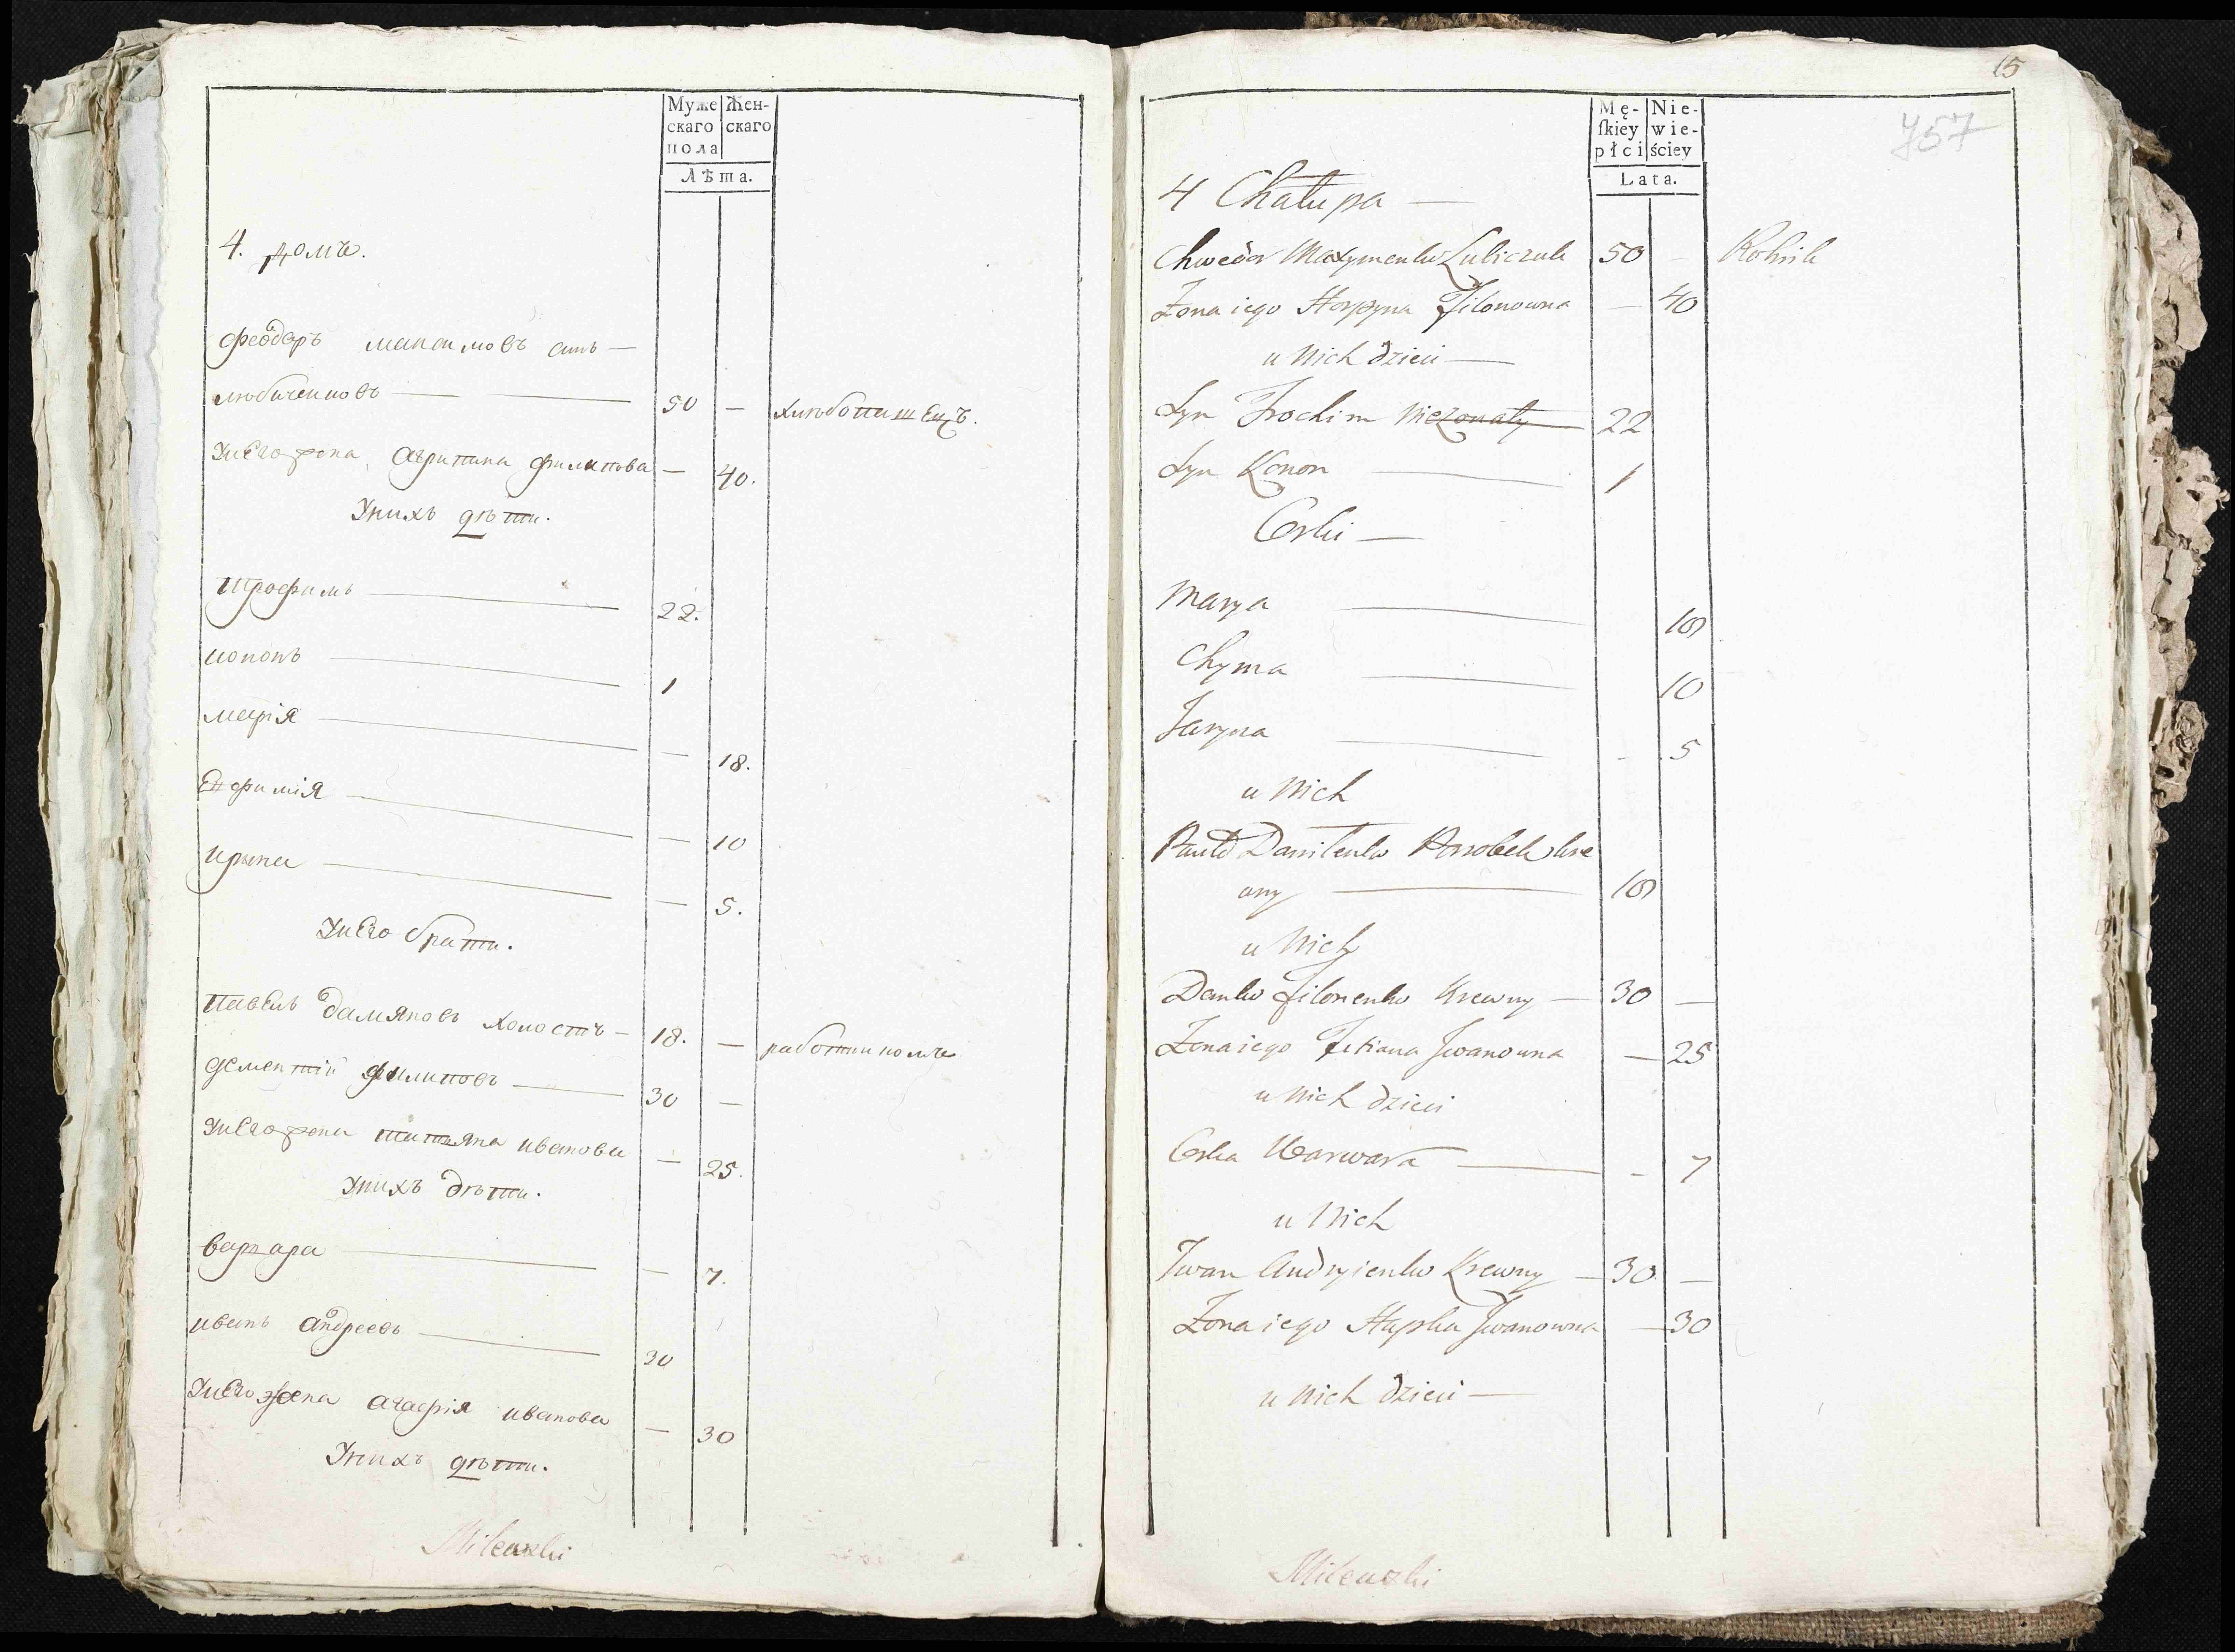 Муже
скаго
пола
Жен-
скаго
Лѣта.
4. домъ.
Феодоръ максимовъ сынъ —
любиченковъ — — 50 — хлѣбопашецъ.
У него жена агрипина филипова — 40.
У нихъ дѣти.
трофимъ — 22.
кононъ — 1
марія — — 18.
Евфимія — — 10
ирина — — 5.
У него братъ.
павелъ дамяновъ холостъ — 18. — работникомъ
дементій филиповъ — 30 —
У него жена татьяна иванова — 25.
У нихъ дѣти.
варвара — — 7.
иванъ андреевъ — 30
У него жена агафія иванова — 30
У нихъ дѣти.
Milewski
15
757
Mę-
ſkiey
płci
Nie-
wie-
ściey
Lata.
4 Chałupa —
Chwedor Maxymenko Lubiczuk 50 — Rolnik
Żona iego Horpyna Filonowna — 40
u Nich dzieci —
Syn Trochim Nieżonaty 22
Syn Konon — 1
Corki —
Marya — 18
Chyma — 10
Jaryna — - 5
u Nich
Pawło Daniłenko Parobek
— 18
u Nich
Demko Filonenko Krewny — 30 —
Żona iego Tetiana Iwanowna — 25
u Nich dzieci
Corka Warwara — - 7
u Nich
Iwan Andryienko Krewny — 30 —
Żona iego Hapka Iwanowna — 30
u Nich dzieci —
Milewski